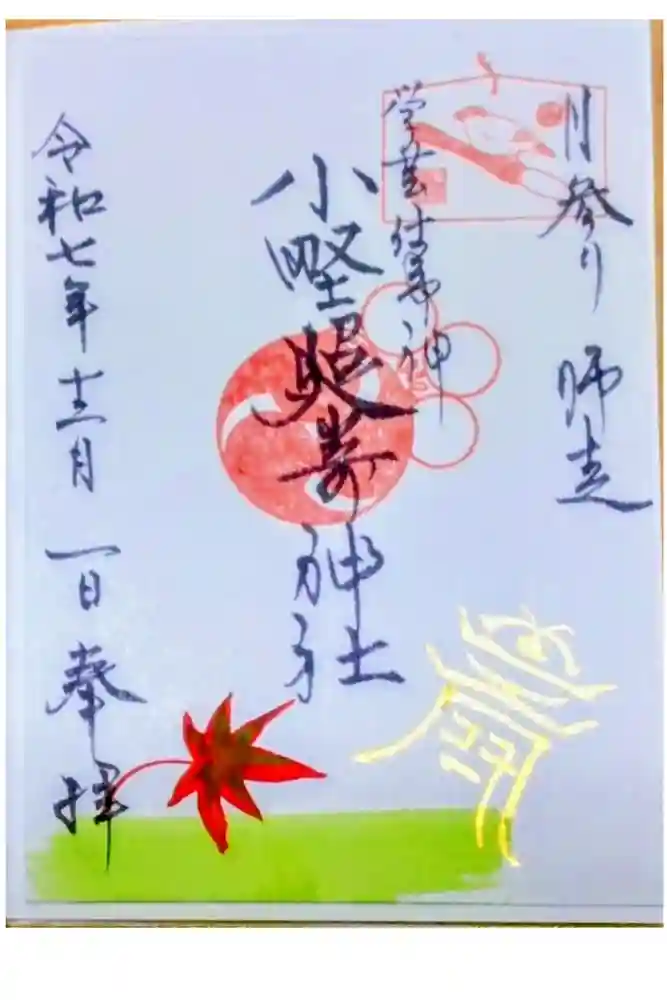 月参り 師走
学芸仕事神
小墅照嵜神社
令和七年十二月一日奉拝